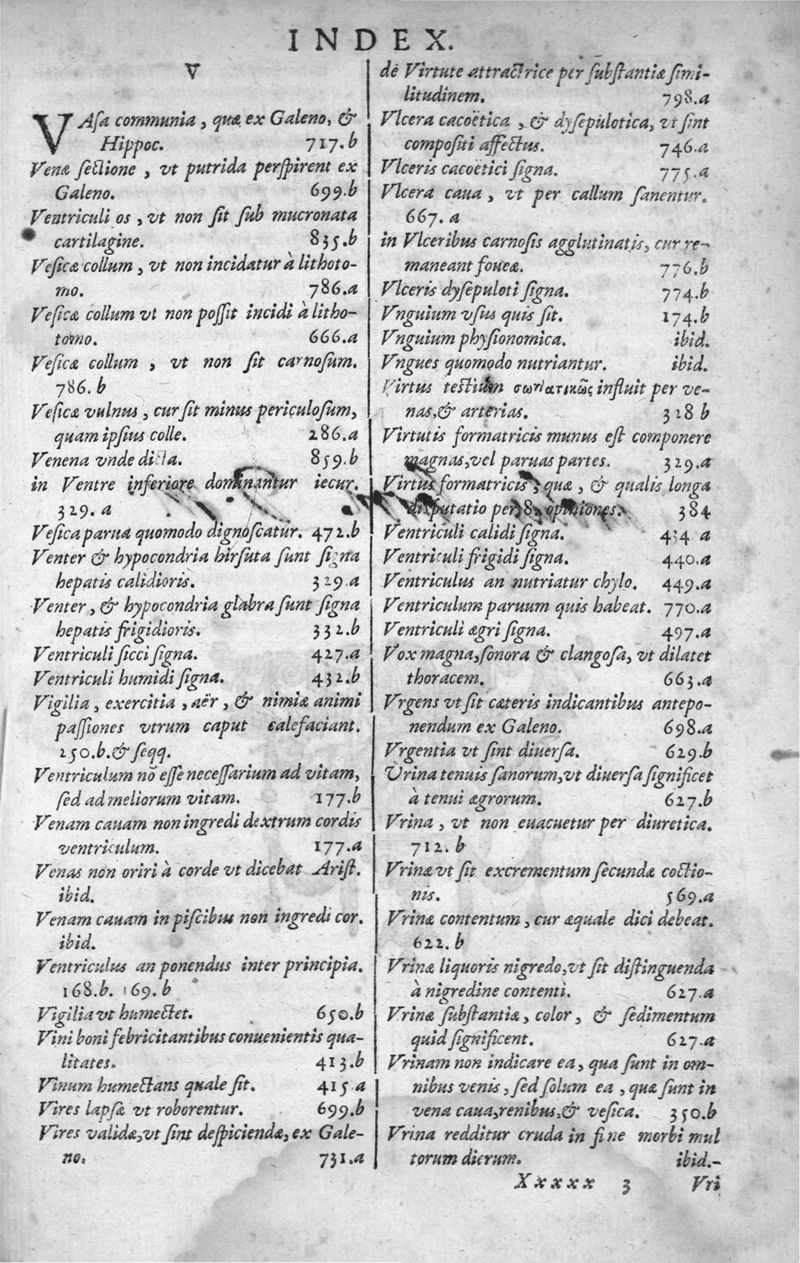 INDEX.
V
VAſa communia, quæ ex Galeno, &
Hippoc. 717.b
Venæ ſectione, vt putrida perſpirent ex
Galeno. 699.b
Ventriculi os, vt non ſit ſub mucronata
cartilagine. 835.b
Veſicæ collum, vt non incidatur à lithoto-
mo. 786.a
Veſicæ collum vt non poſſit incidi à litho-
tomo. 666.a
Veſicæ collum, vt non ſit carnoſum.
786.b
Veſicæ vulnus, cur ſit minus periculoſum,
quam ipſius colle. 286.a
Venena vnde dicta. 859.b
in Ventre inferiore dominantur iecur.
329.a
Veſica parua quomodo dignoſcatur. 472.b
Venter & hypocondria hirſuta ſunt ſigna
hepatis calidioris. 329.a
Venter, & hypocondria glabra ſunt ſigna
hepatis frigidioris. 332.b
Ventriculi ſicci ſigna. 427.a
Ventriculi humidi ſigna. 432.b
Vigilia, exercitia, aër, & nimiæ animi
paſſiones vtrum caput calefaciant.
250.b.& ſeqq.
Ventriculum nō eſſe neceſſarium ad vitam,
ſed ad meliorum vitam. 177.b
Venam cauam non ingredi dextrum cordis
ventriculum. 177.a
Venas non oriri à corde vt dicebat Ariſt.
ibid.
Venam cauam in piſcibus non ingredi cor.
ibid.
Ventriculus an ponendus inter principia.
168.b. 169.b
Vigilia vt humectet. 650.b
Vini boni febricitantibus conuenientis qua-
litates. 413.b
Vinum humectans quale ſit. 415.a
Vires lapſæ vt roborentur. 699.b
Vires validæ, vt ſint deſpiciendæ, ex Gale-
no. 731.a
de Virtute attractrice per ſubſtantiæ ſimi-
litudinem. 798.a
Vlcera cacoëtica, & dyſepulotica, vt ſint
compoſiti affectus. 746.a
Vlceris cacoëtici ſigna. 775.a
Vlcera caua, vt per callum ſanentur.
667.a
in Vlceribus carnoſis agglutinatis, cur re-
maneant foueæ. 776.b
Vlceris dyſepuloti ſigna. 774.b
Vnguium vſus quis ſit. 174.b
Vnguium phyſionomica. ibid.
Vngues quomodo nutriantur. ibid.
Virtus teſtium influit per ve-
nas, & arterias. 328 b
Virtutis formatricis munus eſt componere
magnas, vel paruas partes. 329.a
Virtus formatricis, quæ, & qualis longa
diſputatio per 8. opiniones. 384
Ventriculi calidi ſigna. 434 a
Ventriculi frigidi ſigna. 440.a
Ventriculus an nutriatur chylo. 449.a
Ventriculum paruum quis habeat. 770.a
Ventriculi ægri ſigna. 497.a
Vox magna, ſonora & clangoſa, vt dilatet
thoracem. 663.a
Vrgens vt ſit cæteris indicantibus antepo-
nendum ex Galeno. 698.a
Vrgentia vt ſint diuerſa. 629.b
Vrina tenuis ſanorum, vt diuerſa ſignificet
à tenui ægrorum. 627.b
Vrina, vt non euacuetur per diuretica.
712.b
Vrina vt ſit excrementum ſecundæ coctio-
nis. 569.a
Vrinæ contentum, cur æquale dici debeat.
622.b
Vrinæ liquoris nigredo, vt ſit diſtinguenda
à nigredine contenti. 627.a
Vrinæ ſubſtantia, color, & ſedimentum
quid ſignificent. 627.a
Vrinam non indicare ea, qua ſunt in om-
nibus venis, ſed ſolum ea, quæ ſunt in
vena caua, renibus, & veſica. 350.b
Vrina redditur cruda in fine morbi mul
torum dierum. ibid.-
Xxxxx 3 Vri